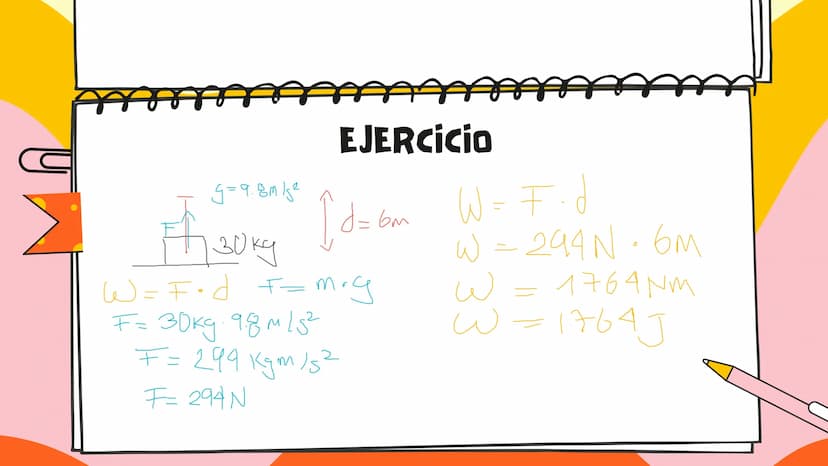 EJERCiCiO
g=9.8m/s²
F
30kg
d=6m
W=F·d F=m·g
F=30kg·9.8m/s²
F=294kgm/s²
F=294N
W=F·d
W=294N·6m
W=1764Nm
W=1764J